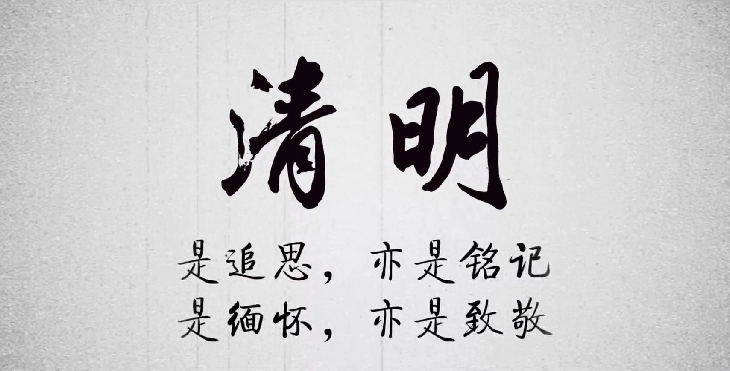 清明
是追思，亦是铭记
是缅怀，亦是致敬